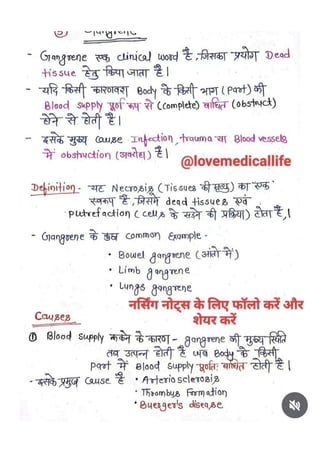 (5) Gangrene
- Gangrene एक clinical word है, जिसका प्रयोग Dead
tissue हेतु किया जाता है।
- यदि किसी कारणवश Body के किसी भाग (Part) की
Blood supply पूर्ण रूप से (complete) बाधित (obstruct)
होने से होती है।
- इसके मुख्य cause Infection, trauma या Blood vessels
में obstruction (अवरोध) है।
@lovemedicallife
Definition - यह Necrosis (Tissues की मृत्यु) का एक
स्वरूप है, जिसमे dead tissues एवं
putrefaction (cells के सड़ने की प्रक्रिया) होता है,।
- Gangrene के कुछ common Example -
• Bowel gangrene (आंतो में)
• Limb gangrene
• Lungs gangrene
नर्सिंग नोट्स के लिए फॉलो करें और
शेयर करें
Causes
① Blood supply रूकने के कारण - gangrene की मुख्य स्थिति
तब उत्पन्न होती है जब Body के किसी
Part में Blood supply पूर्णतः बाधित होती है।
- इसके प्रमुख cause है • Arteriosclerosis
• Thrombus Formation
• Buerger's disease